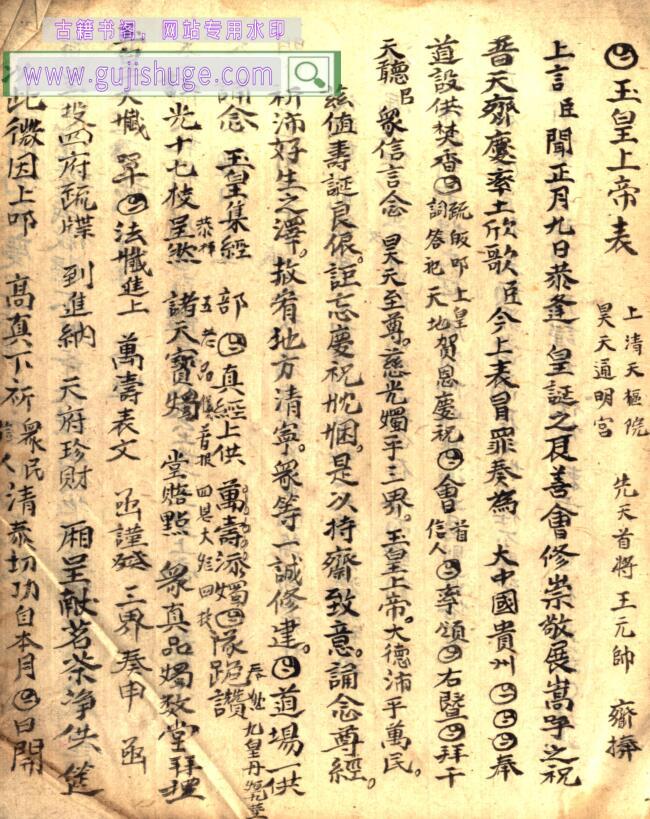 古籍书阁，网站专用水印
www.gujishuge.com
玉皇上帝表
上清天樞院
昊天通明宮
先天首將王元帥 齎捧
上言臣聞正月九日恭逢 皇誕之辰善會修崇敬展嵩呼之祝
普天齊慶率土欣歌臣今上表冒罪奏為 大中國貴州 奉
道設供焚香 疏皈叩上皇
詞答祀天地 賀恩慶祝 會首
信人 率領 右暨 拜干
天聽臣 衆信言念 昊天至尊。慈光燭乎三界。玉皇上帝。大德沛乎萬民。
茲值壽誕良 詎忘慶祝 悃。是以持齋致意。誦念尊經。
祈沛好生之澤。 地方清寧。衆等一誠修建。 道場一供
誦念 玉皇集經 部 真經上供 萬壽添燭 隊跪讚
光十七枝呈 諸天寶燭 堂 點 衆真品燭 堂拜理
天懺 法懺進上 萬壽表文 函謹 三界奏申 函
投四府疏牒 到進納 天府珍財 廂呈献茗茶浄供 筵
此微因上叩 高真下祈 衆民 清泰切功自本月 日開